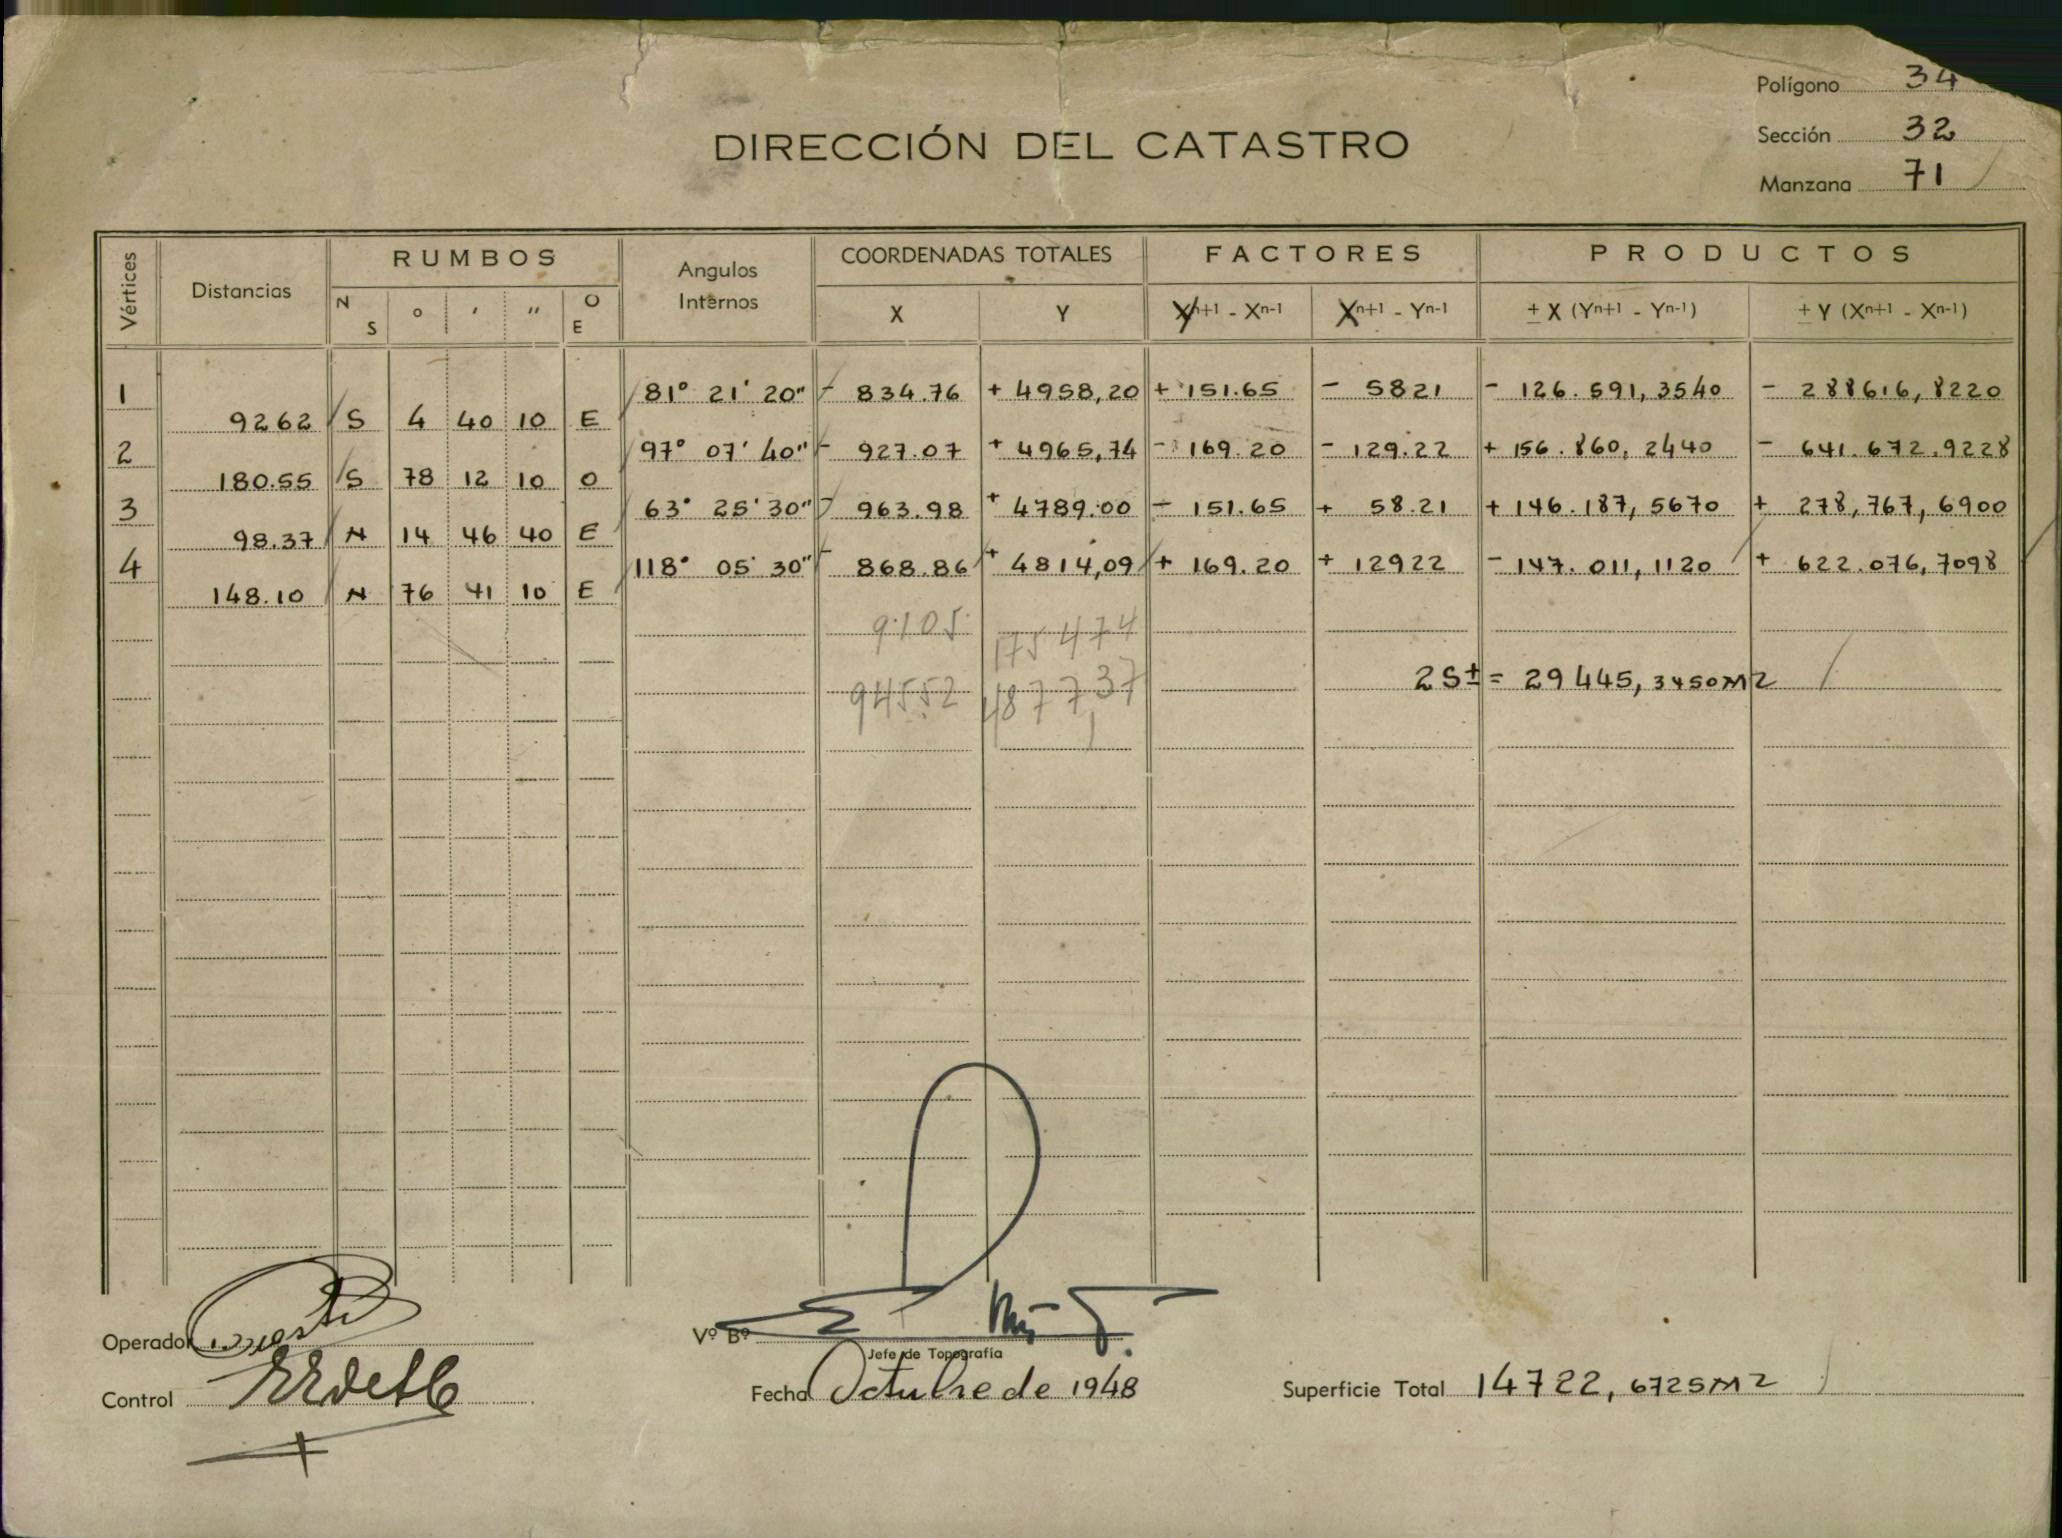 Polígono 34
Sección 32
Manzana 71
DIRECCIÓN DEL CATASTRO
Vértices Distancias RUMBOS Angulos Internos COORDENADAS TOTALES FACTORES PRODUCTOS
N S ° ' " O E X Y Xn+1 - Xn-1 Xn+1 - Yn-1 ± X (Yn+1 - Yn-1) ± Y (Xn+1 - Xn-1)
1 81° 21' 20" - 834.76 + 4958,20 + 151.65 - 5821 - 126.591,3540 - 288616,8220
9262 S 4 40 10 E
2 97° 07' 40" - 927.07 + 4965,74 - 169.20 - 129.22 + 156.860,2440 - 641.672.9228
180.55 S 78 12 10 O
3 63° 25' 30" - 963.98 + 4789.00 - 151.65 + 58.21 + 146.187,5670 + 278,767,6900
98.37 N 14 46 40 E
4 118° 05' 30" - 868.86 + 4814,09 + 169.20 + 12922 - 147.011,1120 + 622.076,7098
148.10 N 76 41 10 E
9105 175474
94552 487737
2S± = 29445,3450M2
Operador
Vº Bº
Jefe de Topografía
Control
Fecha Octubre de 1948
Superficie Total 14722,6725M2